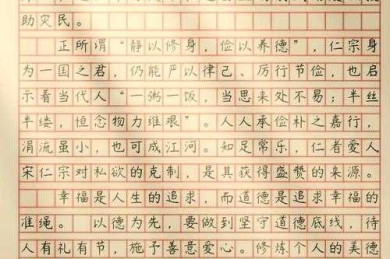 助灾民。
正所谓“静以修身，俭以养德”，仁宗身
为一国之君，仍能严以律己、厉行节俭，也启
示着当代人“一粥一饭，当思来处不易；半丝
半缕，恒念物力维艰”。人人承俭朴之嘉行，
涓流虽小，也可成江河。知足常乐，仁者爱人
宋仁宗对私欲的克制，是其获得盛赞的来源。
幸福是人生的追求，而道德是追求幸福的
准绳。以德为先，要做到坚守道德底线，待
人有礼有节，施予善意爱心。修炼个人的美德